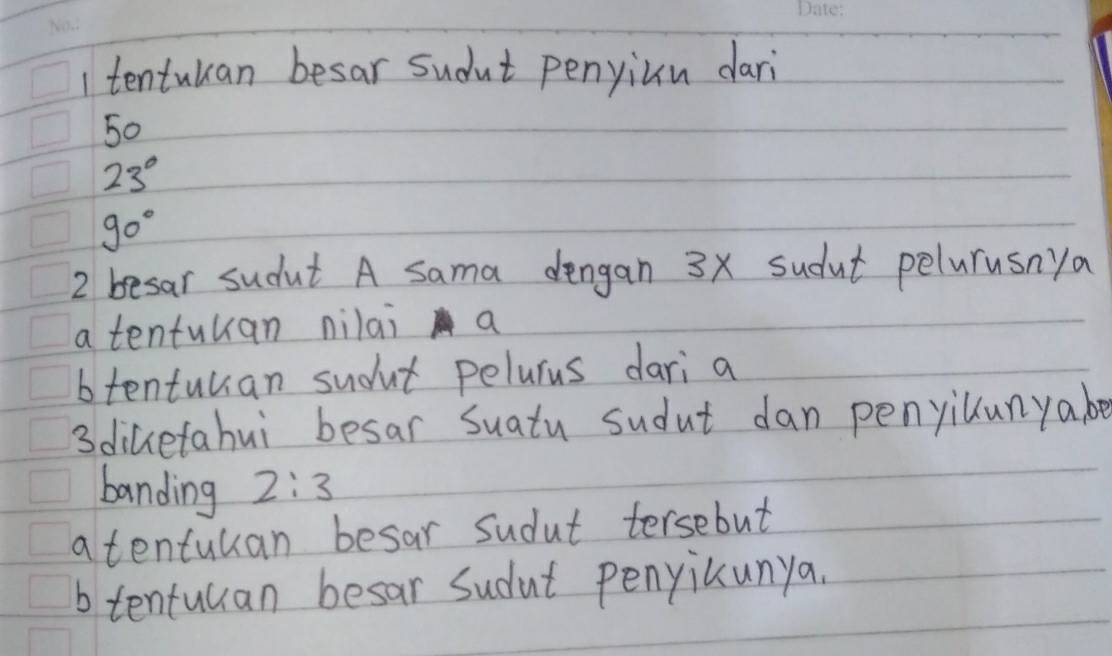 No.:
Date:
1 tentukan besar sudut penyiku dari
50
23°
90°
2 besar sudut A sama dengan 3x sudut pelurusnya
a tentukan nilai a
b tentukan sudut pelurus dari a
3 diketahui besar suatu sudut dan penyikunya ber
banding 2:3
a tentukan besar sudut tersebut
b tentukan besar sudut penyikunya.